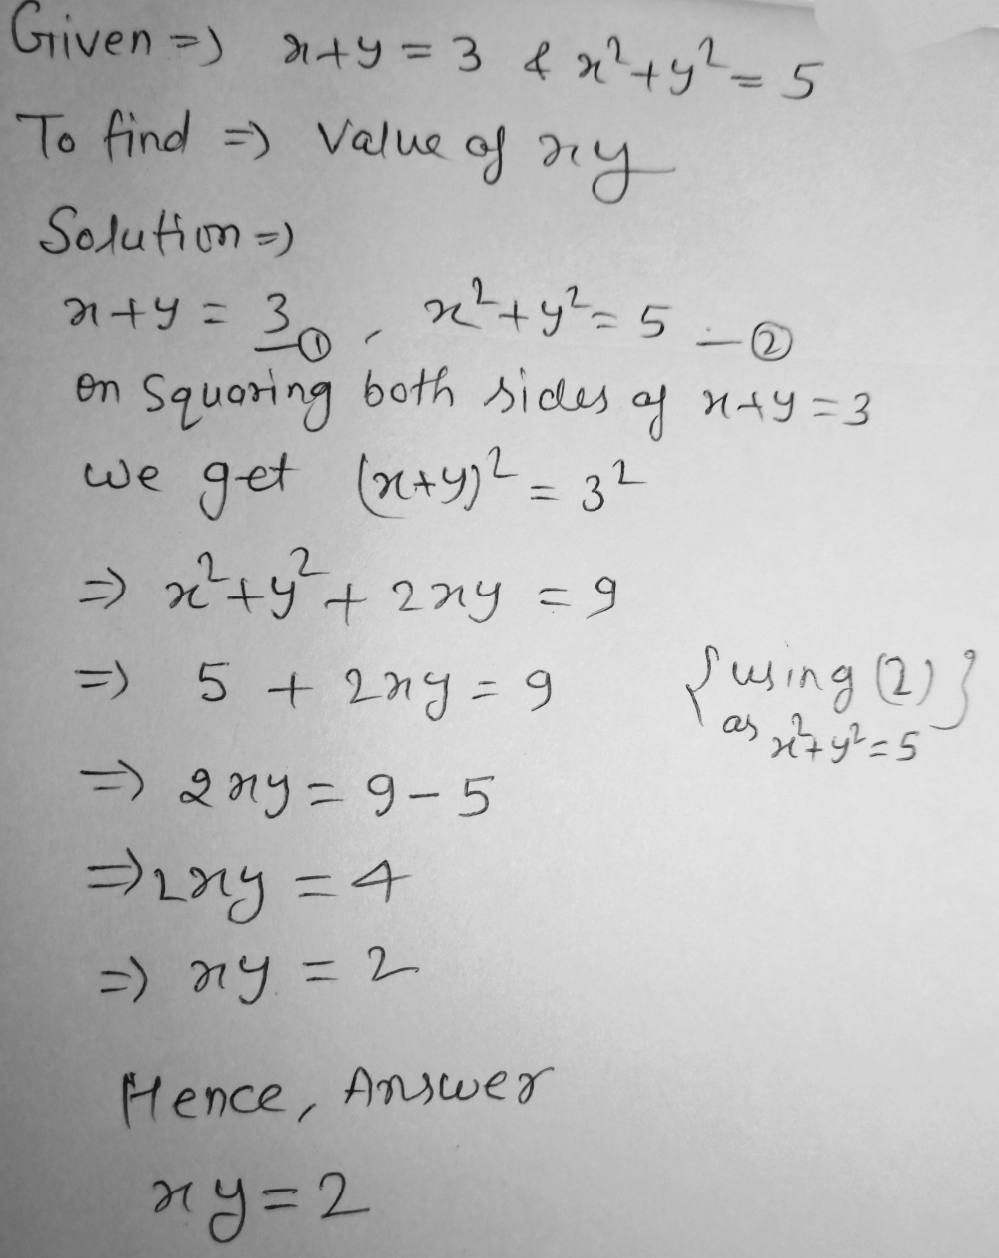 Given => x+y = 3 & x²+y² = 5
To find => Value of xy
Solution =>
x+y = 3 —①, x²+y² = 5 —②
on Squaring both sides of x+y = 3
we get (x+y)² = 3²
=> x²+y²+ 2xy = 9
=> 5 + 2xy = 9 {using (2)}
as x²+y² = 5
=> 2xy = 9-5
=> 2xy = 4
=> xy = 2
Hence, Answer
xy = 2